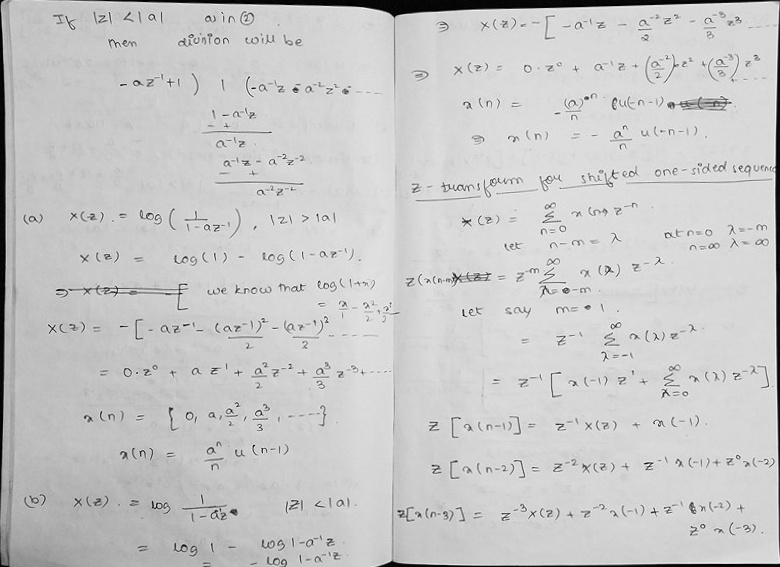 If |z| < |a| as in ②
then division will be
-az⁻¹+1 ) 1 ( -a⁻¹z - a⁻²z² - ----
1 - a⁻¹z
- +
a⁻¹z
a⁻¹z - a⁻²z⁻²
- +
a⁻²z⁻²
(a) X(z) = log ( 1 / 1-az⁻¹ ) , |z| > |a|
X(z) = log(1) - log(1-az⁻¹).
we know that log(1+x)
= x/1 - x²/2 + x³/3
X(z) = -[ -az⁻¹ - (az⁻¹)²/2 - (az⁻¹)²/2 -----
= 0·z⁰ + a z¹ + a²/2 z⁻² + a³/3 z⁻³ + ----
x(n) = { 0, a, a²/2, a³/3, ----}
x(n) = aⁿ/n u(n-1)
(b) X(z) = log 1 / 1-a¹z |z| < |a|.
= log 1 - log 1-a⁻¹z
= - log 1-a⁻¹z.
⇒ X(z) = -[ -a⁻¹z - a⁻²/2 z² - a⁻³/3 z³ ----
⇒ X(z) = 0·z⁰ + a⁻¹z + (a⁻²/2) z² + (a⁻³/3) z³ ----
x(n) = -(a)ⁿ/n u(-n-1)
⇒ x(n) = - aⁿ/n u(-n-1).
Z-transform for shifted one-sided sequence
X(z) = ∞ Σ n=0 x(n) z⁻ⁿ
let n-m = λ at n=0 λ=-m
n=∞ λ=∞
Z(x(n-m)) = z⁻ᵐ ∞ Σ λ=-m x(λ) z^-λ
let say m = 1.
= z⁻¹ ∞ Σ λ=-1 x(λ) z^-λ
= z⁻¹ [ x(-1) z¹ + ∞ Σ λ=0 x(λ) z^-λ ]
Z [x(n-1)] = z⁻¹ X(z) + x(-1).
Z [x(n-2)] = z⁻² X(z) + z⁻¹ x(-1) + z⁰ x(-2)
Z[x(n-3)] = z⁻³ X(z) + z⁻² x(-1) + z⁻¹ x(-2) +
z⁰ x(-3).